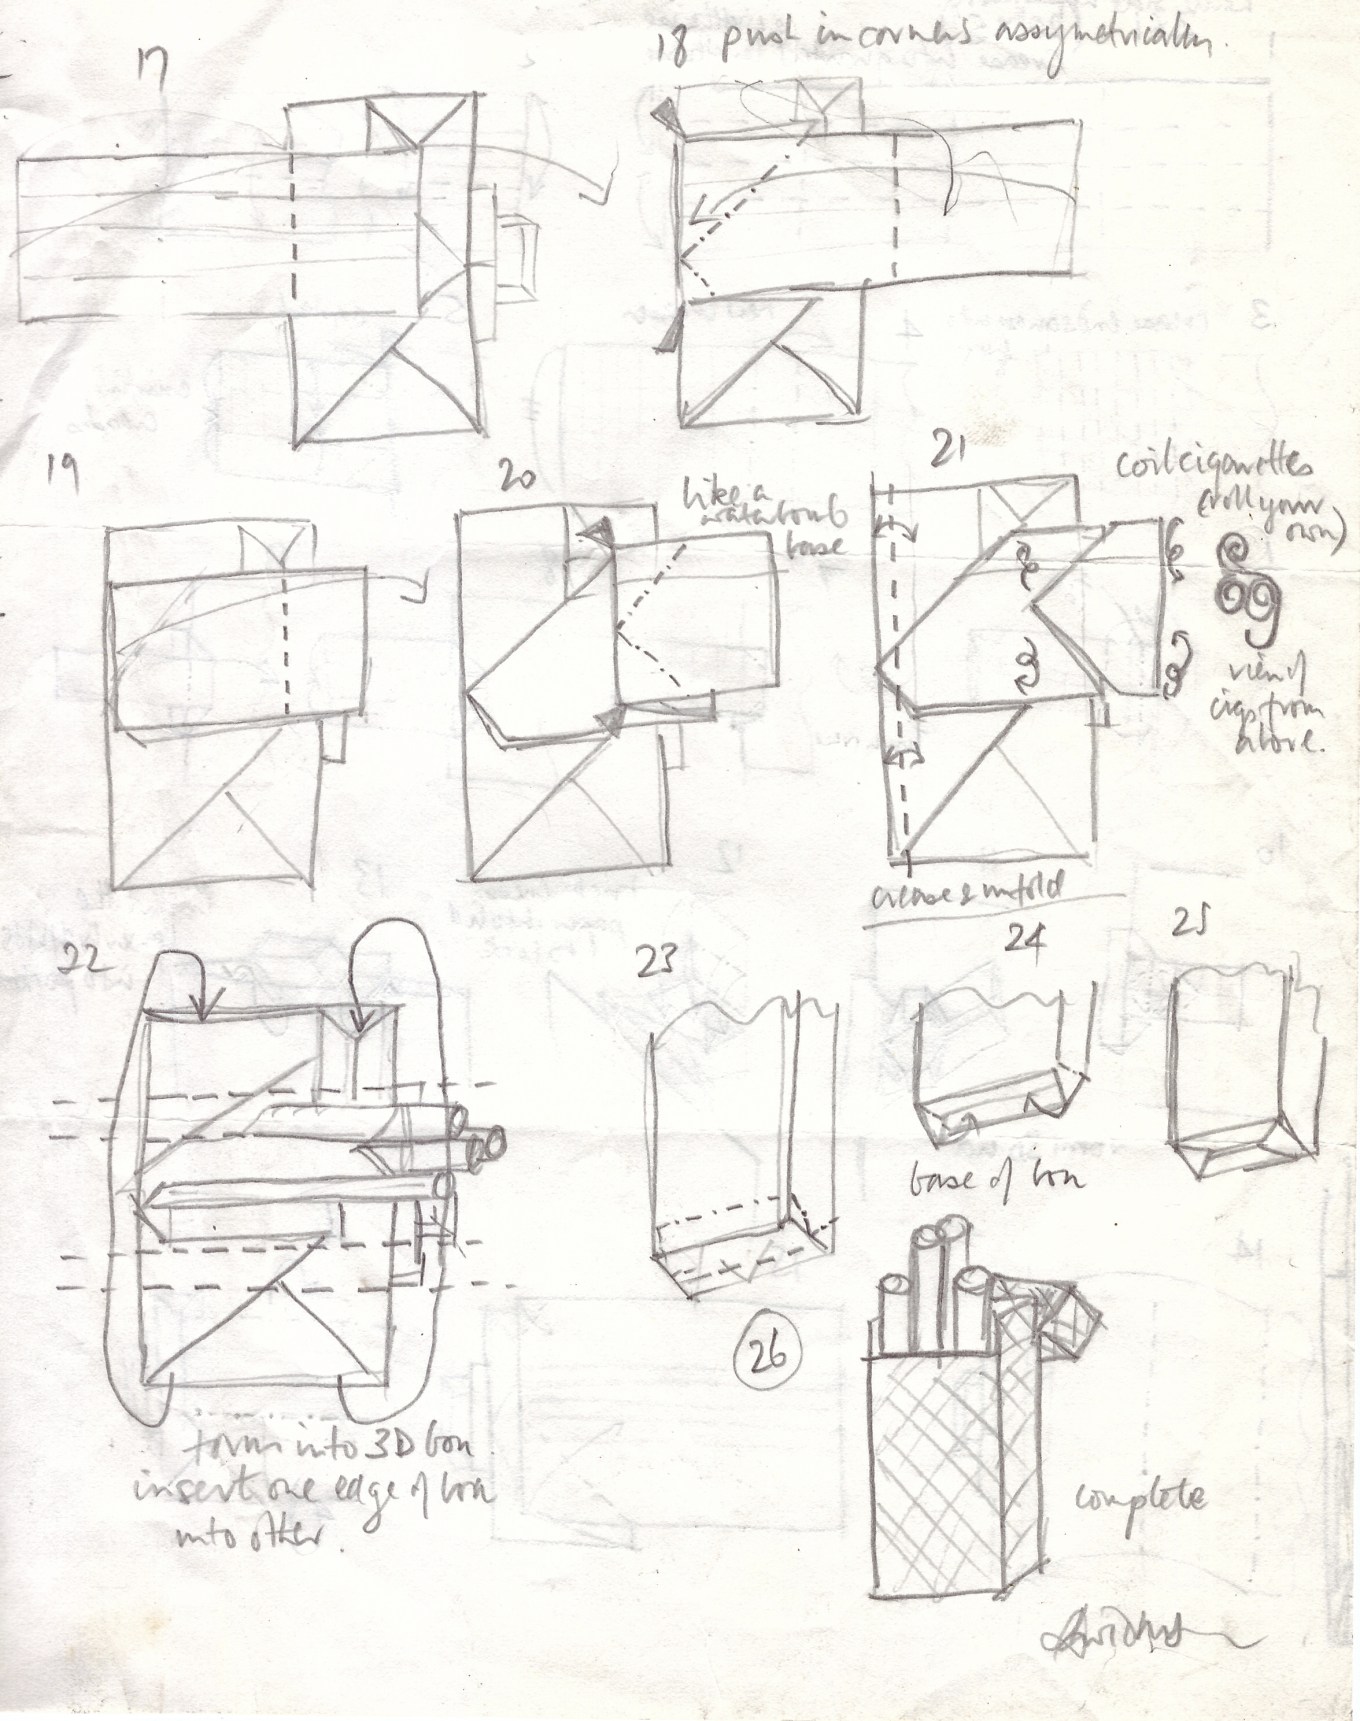 17
18 push in corners assymetrically.
19
20
like a
waterbomb
base
21
coil cigarettes
(roll your
own)
view of
cigs from
above.
crease & unfold
22
form into 3D box
insert one edge of box
into other.
23
24
base of box
25
26
complete